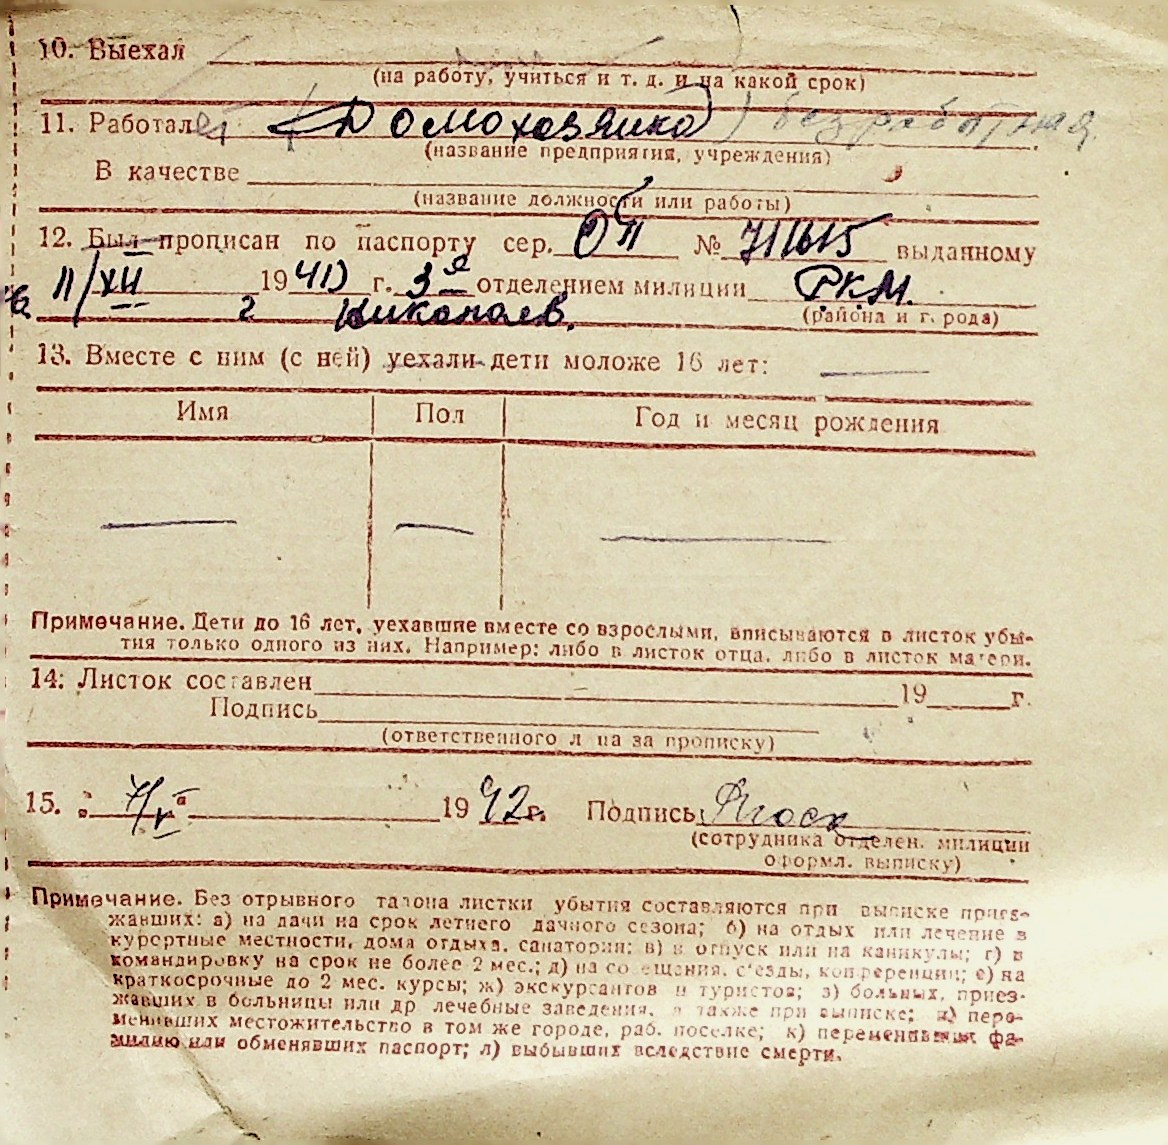 10. Выехал
(на работу, учиться и т. д. и на какой срок)
11. Работает (Домохозяйка) безработная
(название предприятия, учреждения)
В качестве
(название должности или работы)
12. Был прописан по паспорту сер. ОП № 711615 выданному
11/XII 1940 г. 3й отделением милиции РКМ.
г Николаев. (района и города)
13. Вместе с ним (с ней) уехали дети моложе 16 лет:
Имя Пол Год и месяц рождения
Примечание. Дети до 16 лет, уехавшие вместе со взрослыми, вписываются в листок убы-
тия только одного из них. Например: либо в листок отца, либо в листок матери.
14. Листок составлен 19 г.
Подпись
(ответственного лица за прописку)
15. 7/V 1942 г. Подпись
(сотрудника отделен. милиции
оформл. выписку)
Примечание. Без отрывного талона листки убытия составляются при выписке приез-
жавших: а) на дачи на срок летнего дачного сезона; б) на отдых или лечение в
курортные местности, дома отдыха, санатории; в) в отпуск или на каникулы; г) в
командировку на срок не более 2 мес.; д) на совещания, съезды, конференции; е) на
краткосрочные до 2 мес. курсы; ж) экскурсантов и туристов; з) больных, приез-
жавших в больницы или др лечебные заведения, а также при выписке; и) пере-
менивших местожительство в том же городе, раб. поселке; к) переменивших фа-
милию или обменявших паспорт; л) выбывших вследствие смерти.